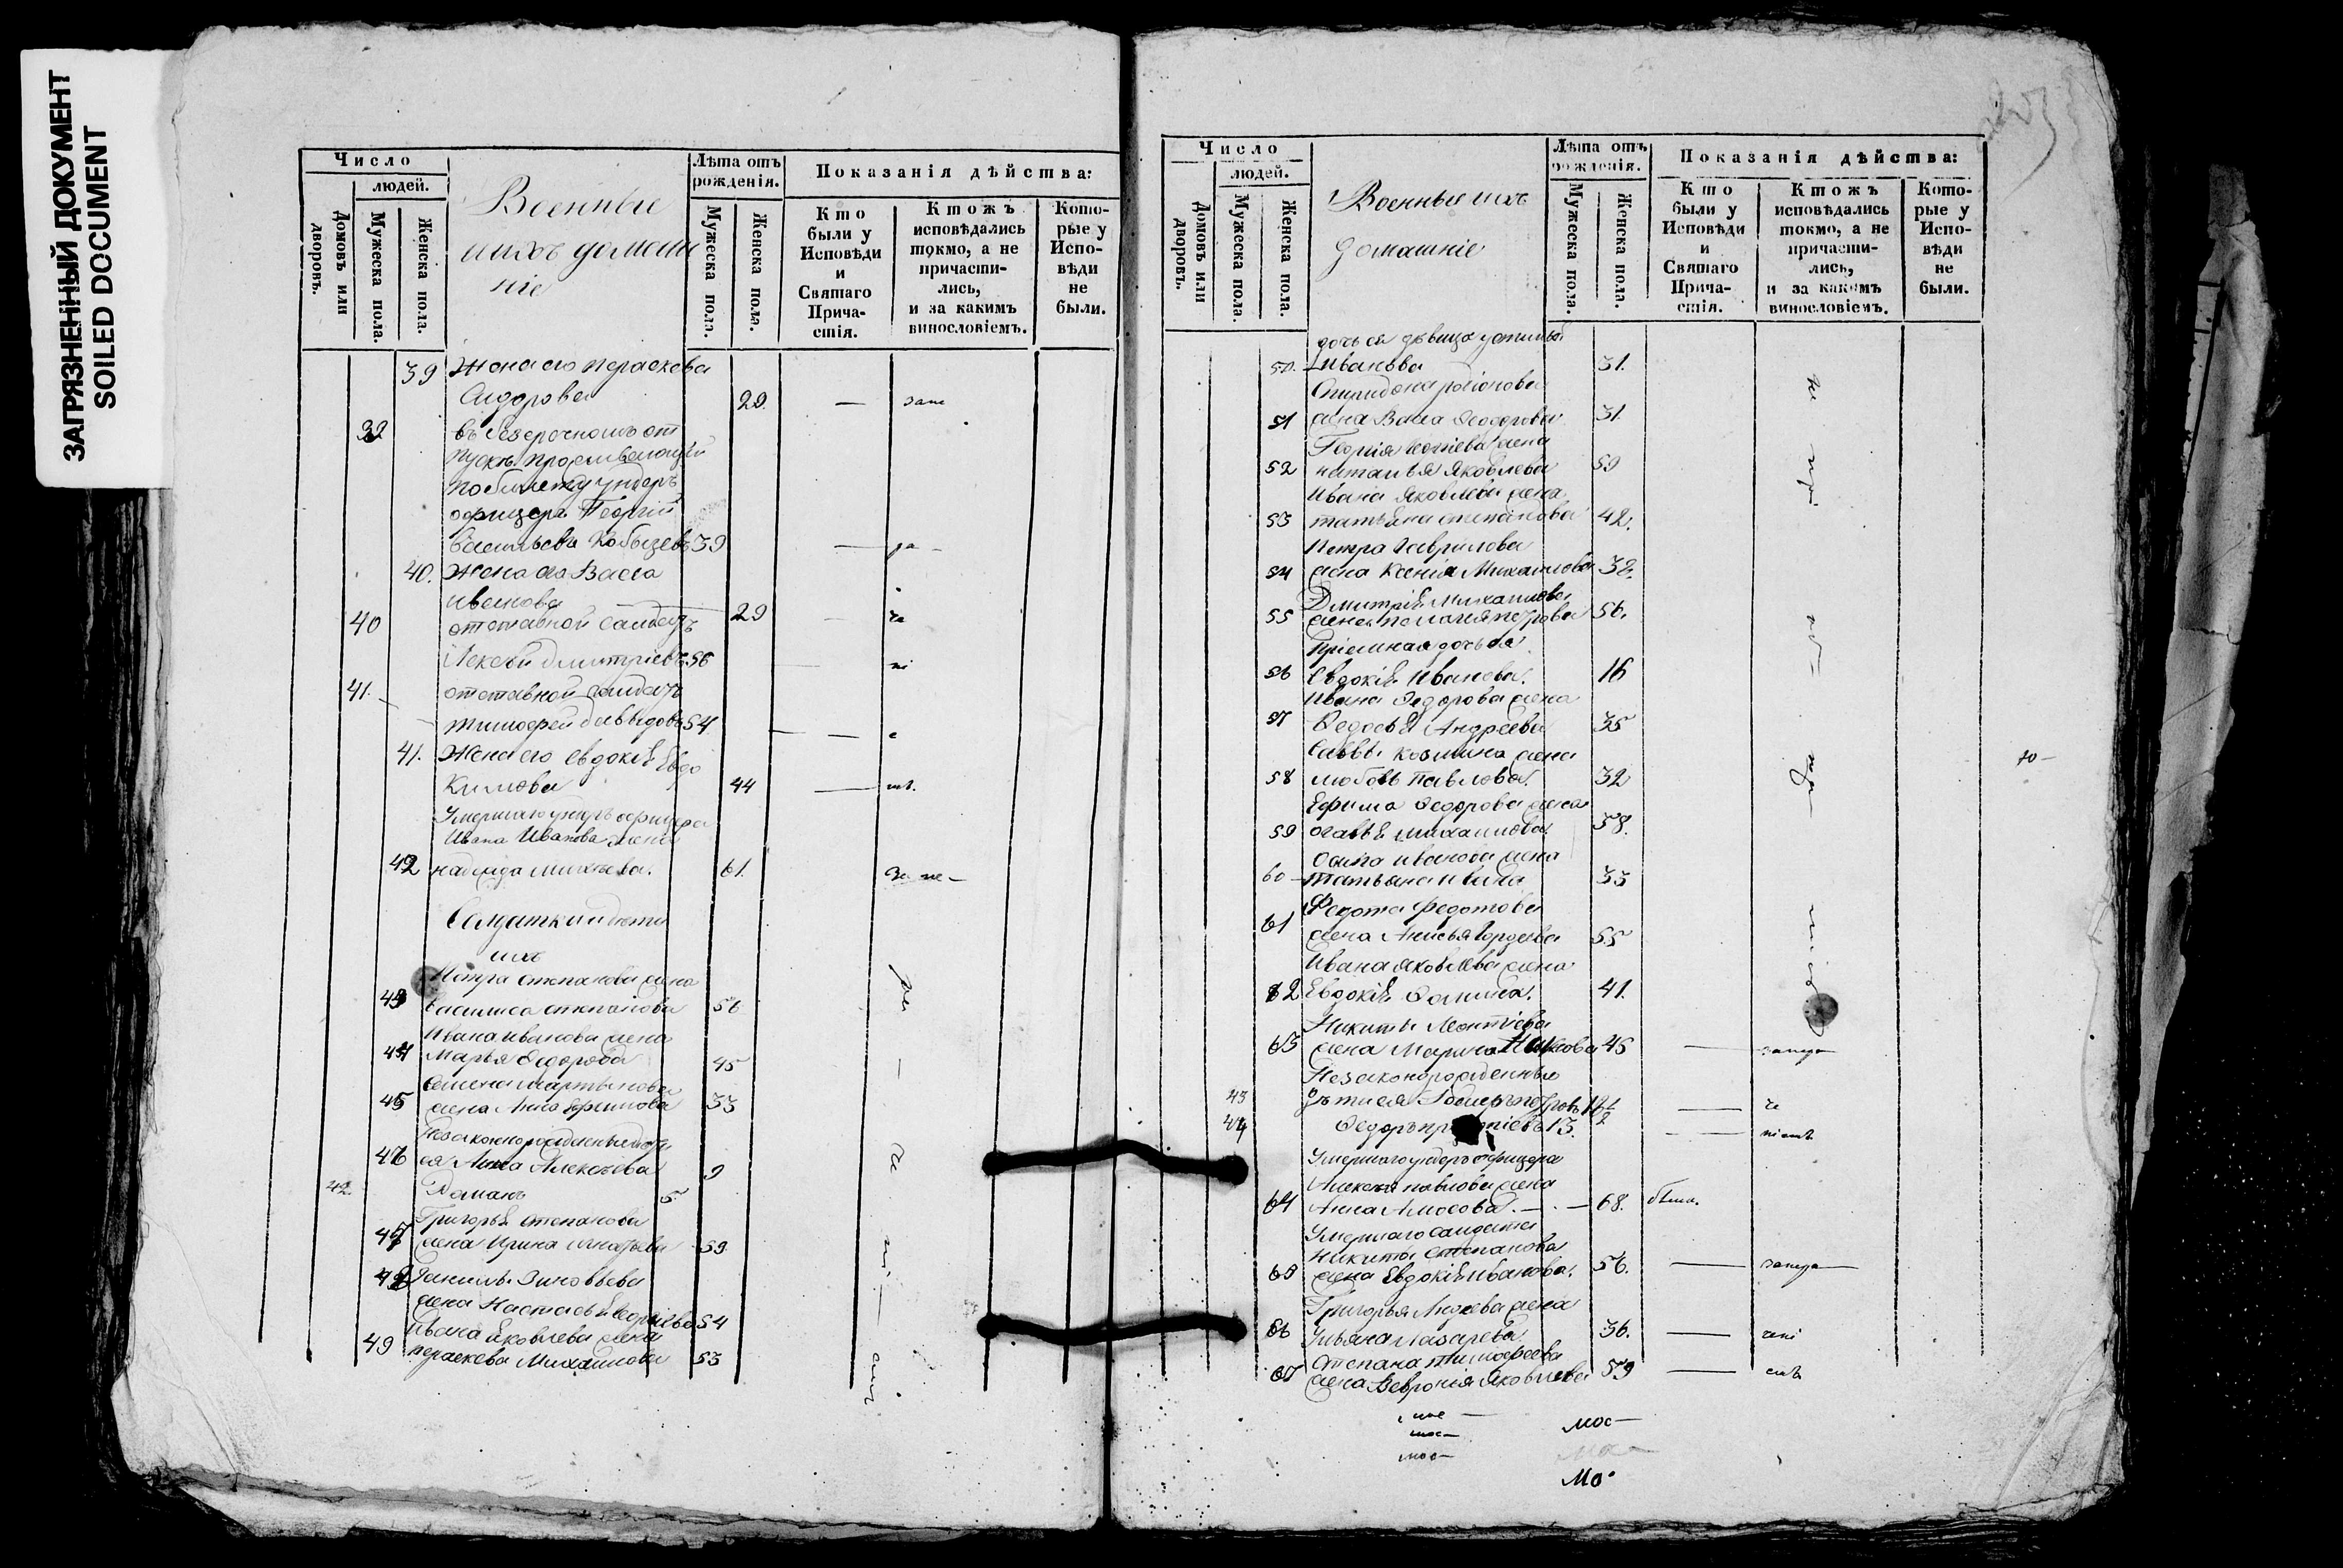 ЗАГРЯЗНЕННЫЙ ДОКУМЕНТ
SOILED DOCUMENT
Число
людей.
Домовъ или дворовъ.
Мужеска пола.
Женска пола.
Военные
ихъ домаш
ніе
Лѣта отъ рожденія.
Мужеска пола.
Женска пола.
Показанія дѣйства:
Кто были у Исповѣди и Святаго Прича-стія.
Ктожъ исповѣдались токмо, а не причасти-лись, и за какимъ винословіемъ.
Кото-рые у Испо-вѣди не были.
39 Жена его Параскева
Сидорова 29 — запе
32 въ безсрочномъ от
пускѣ проживающій
по билету ундеръ
офицеръ Георгій
Васильевъ 39 — ра —
40. Жена его Васса
Иванова 29 — ча
40 отставной солдатъ
Алексѣй Дмитріевъ 56 — ні
41. отставной солдатъ
Тимофей Давыдовъ 54 — е
41. Жена его Евдокія Евдо
кимова 44 —
Умершаго ундеръ офицера
Ивана Иванова жена
42 Надежда 61.
Солдатки и дѣти
ихъ
Петра Степанова жена
43 Василиса Степанова 56
Ивана Иванова жена
44 Марья Федорова 45
Семена Мартынова
45 жена Анна Ефимова 33
Незаконнорожденныя дѣти
46 ея Анна Алексѣева 9
42. Романъ 5.
Григорья Степанова
47 жена Ирина Игнатьева 59
48 Данилы Зиновьева
жена Настасья Георгіева 54
Ивана Яковлева жена
49 Параскева Михайлова 53
Число
людей.
Домовъ или дворовъ.
Мужеска пола.
Женска пола.
Военные ихъ
домашніе
Лѣта отъ рожденія.
Мужеска пола.
Женска пола.
Показанія дѣйства:
Кто были у Исповѣди и Святаго Прича-стія.
Ктожъ исповѣдались токмо, а не причасти-лись, и за какимъ винословіемъ.
Кото-рые у Испо-вѣди не были.
дочь ея дѣвица
50. Иванова 31.
Спиридона Родіонова
51 жена Васса Феодорова 31.
Георгія жена
52 Наталья Яковлева 59
Ивана Яковлева жена
53 Татьяна Степанова 42.
Петра Гаврилова
54 жена Ксенія Михаилова 38.
Дмитрія Михаилова
55 жена Пелагея Петрова 56.
Пріемная дочь ея
56 Евдокія Иванова. 16
Ивана Федорова жена
57 Федосья Андреева 35
Саввы Козмина жена
58 Любовь Павлова. 32
Ефима Федорова жена
59 Михаилова 38.
Осипа Иванова жена
60 Татьяна 33
Федота Федотова
61 жена Анисья Гордеева 55
Ивана Яковлева жена
62 Евдокія Фомина. 41.
Никиты Леонтіева
63 жена Марина 45 —
Незаконорожденные
43 дѣти ея Петровъ
44 Федоръ 13. —
Умершаго ундеръ офицера
Алексѣя Павлова жена
64 Анна Амосова. — 68. была.
Умершаго солдата
Никиты Степанова
65 жена Евдокія Иванова. 56. —
Григорья жена
66 Ульяна Лазарева 36. —
Степана Тимофеева
67 жена Февронія Яковлева 59 —